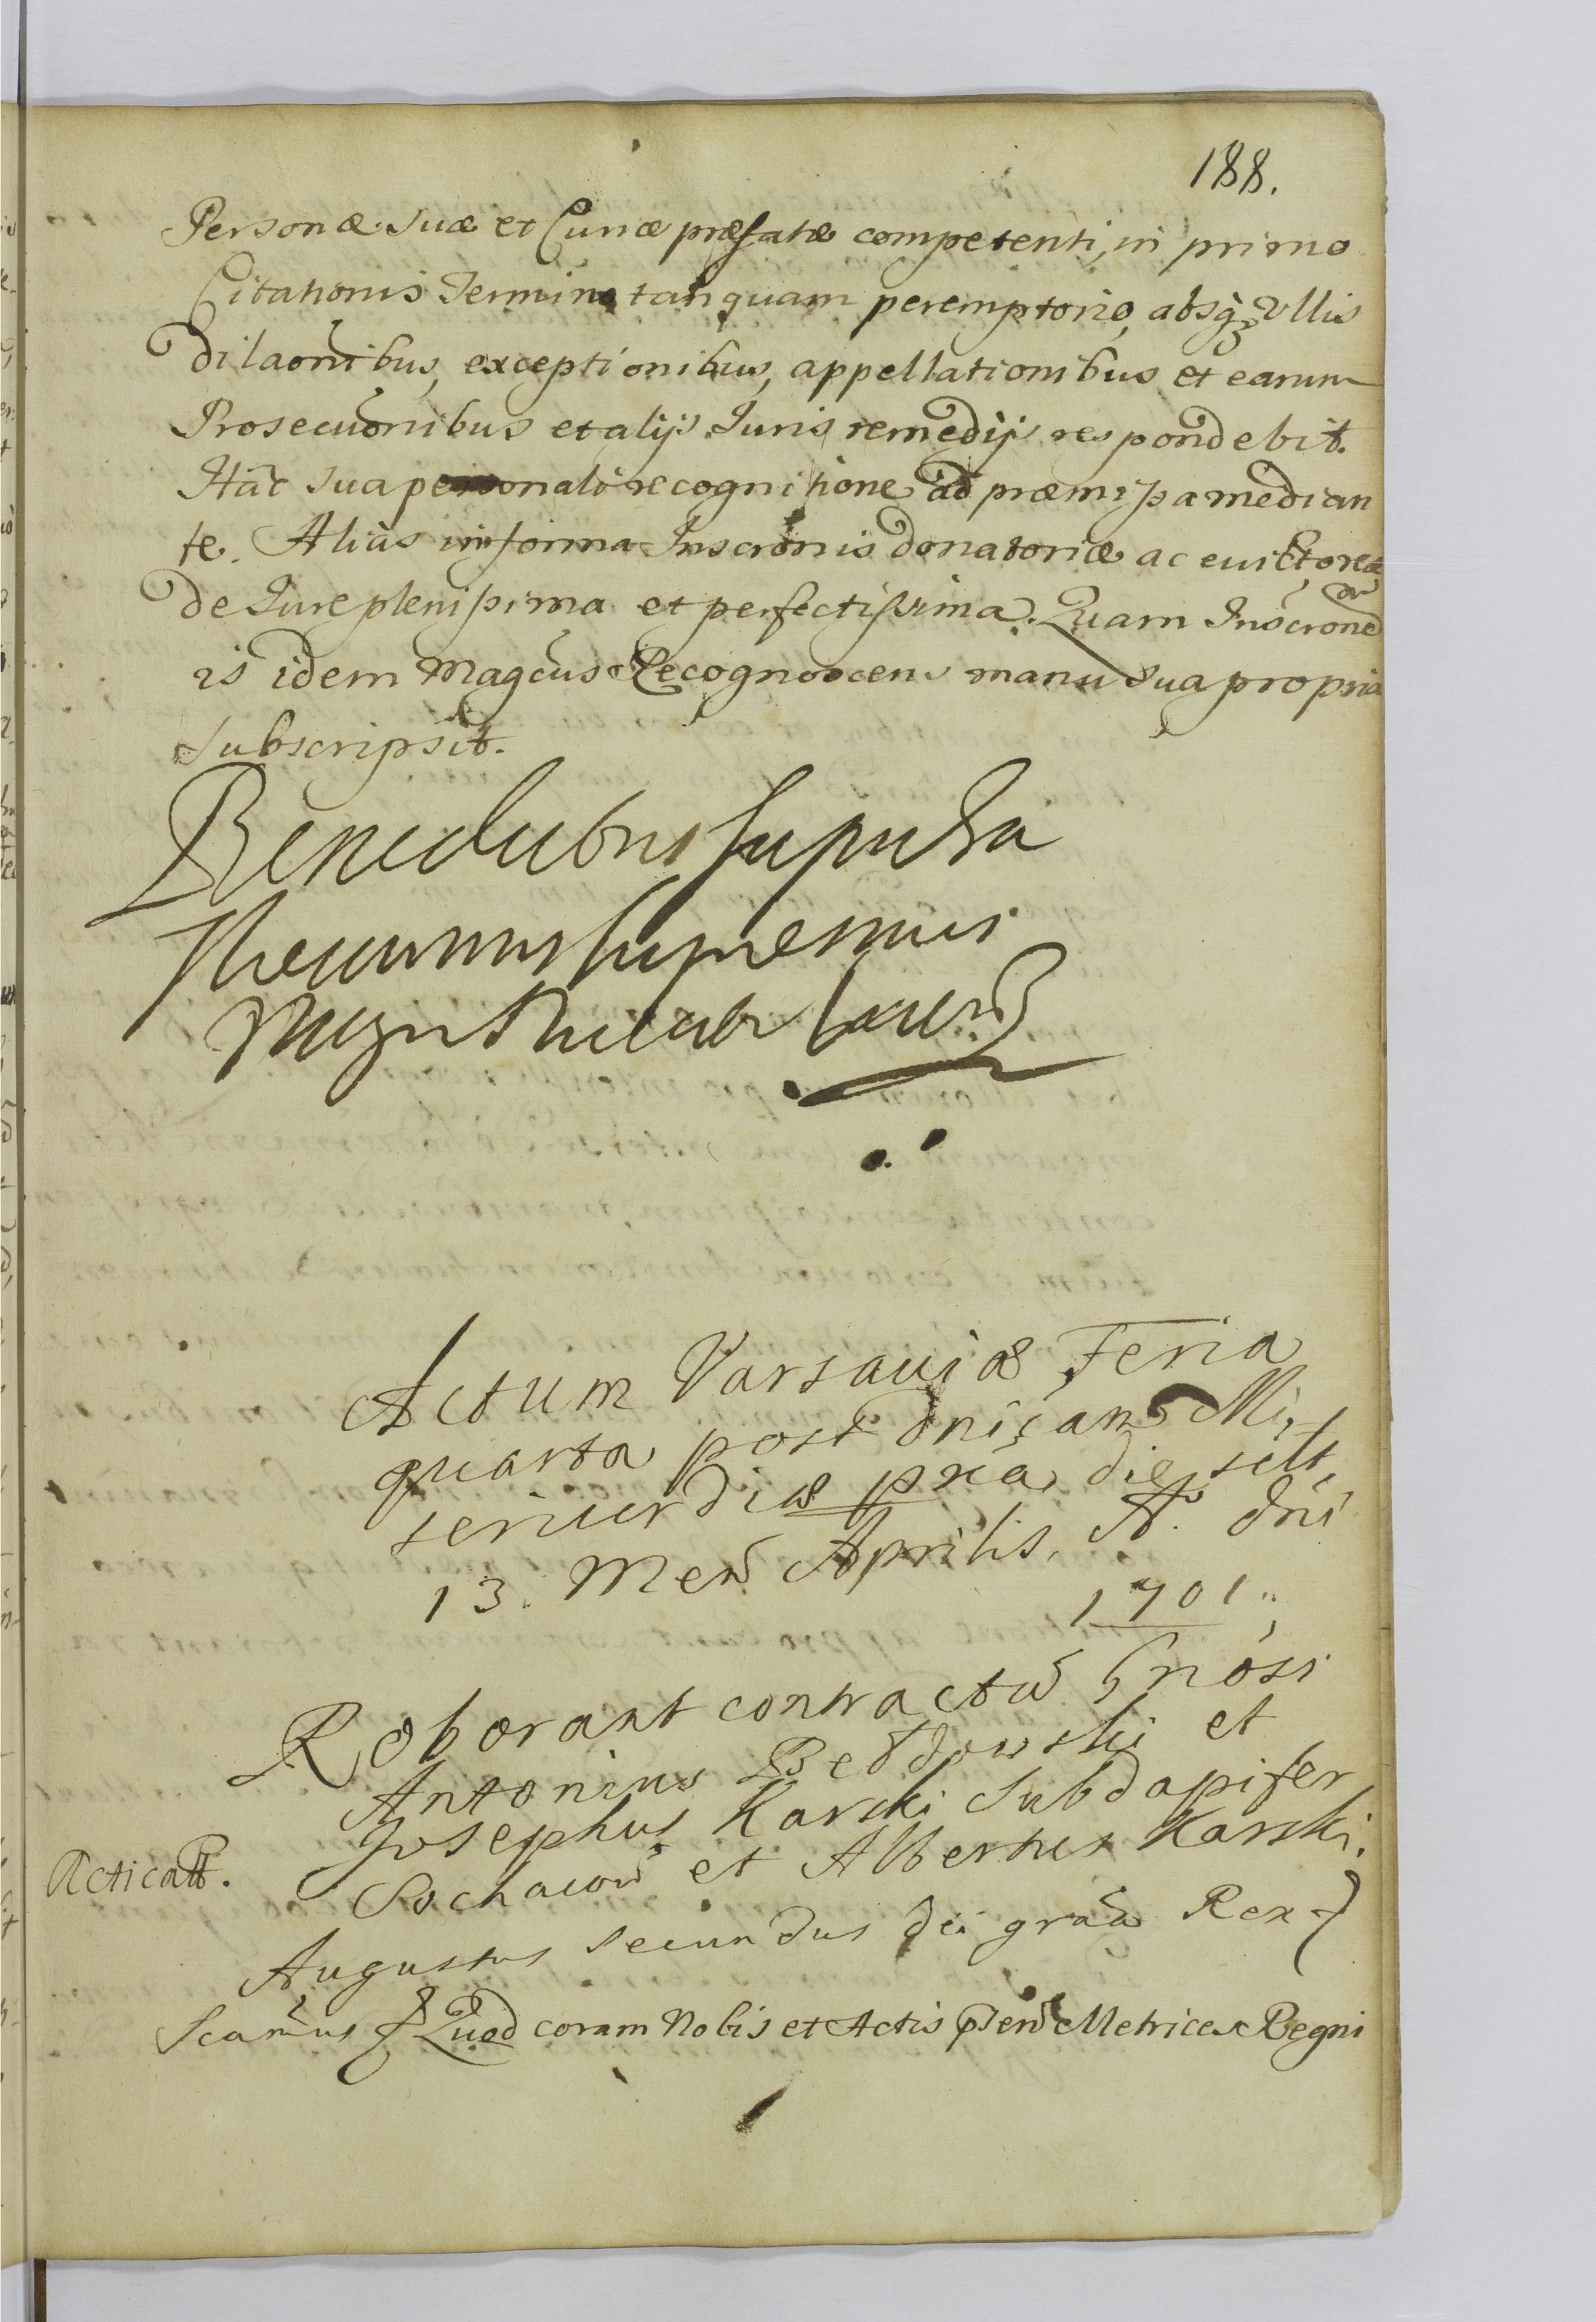 188.
Personæ suæ et Curiæ præfatæ competenti, in primo
Citationis Termino tanquam peremptorio, absq3 Ullis
dilaonibus, exceptionibus, appellationibus et earum
Prosecuonibus et alijs Juris remedijs respondebit.
Hac sua personali recognitione ad præmissa median
te. Alias in forma Inscronis donatoriæ ac evictoreæ
de Jure plenissima et perfectissima. Quam Inscrone
is idem Magcus Recognoscens manu sua propria
subscripsit.
Benedictus Sapieha
Thesaurarius Supremus
Magni Ducatus
Actum Varsaviæ Feria
quarta post Dnicam Mi,
sericordiæ pxia, die scilt,
13. Mens Aprilis, Ao. Dni
1701.
Roborant contractu Gnosi
Antonius et
Josephus Karski Subdapifer
Sochacou et Albertus Karski.
Acticatt.
Augustus Secundus Dei graa Rex
Quod coram Nobis et Actis pnten Metrices Regni